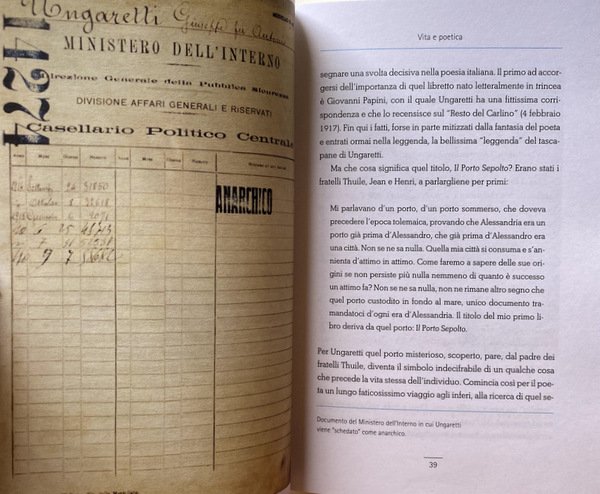 Ungaretti Giuseppe fu Antonio
14274
MINISTERO DELL'INTERNO
Direzione Generale della Pubblica Sicurezza
DIVISIONE AFFARI GENERALI E RISERVATI
Casellario Politico Centrale
ANARCHICO
Vita e poetica
segnare una svolta decisiva nella poesia italiana. Il primo ad accor-
gersi dell'importanza di quel libretto nato letteralmente in trincea
è Giovanni Papini, con il quale Ungaretti ha una fittissima corri-
spondenza e che lo recensisce sul "Resto del Carlino" (4 febbraio
1917). Fin qui i fatti, forse in parte mitizzati dalla fantasia del poeta
e entrati ormai nella leggenda, la bellissima "leggenda" del tasca-
pane di Ungaretti.
Ma che cosa significa quel titolo, Il Porto Sepolto? Erano stati i
fratelli Thuile, Jean e Henri, a parlargliene per primi:
Mi parlavano d'un porto, d'un porto sommerso, che doveva
precedere l'epoca tolemaica, provando che Alessandria era un
porto già prima d'Alessandro, che già prima d'Alessandro era
una città. Non se ne sa nulla. Quella mia città si consuma e s'an-
nienta d'attimo in attimo. Come faremo a sapere delle sue ori-
gini se non persiste più nulla nemmeno di quanto è successo
un attimo fa? Non se ne sa nulla, non ne rimane altro segno che
quel porto custodito in fondo al mare, unico documento tra-
mandatoci d'ogni era d'Alessandria. Il titolo del mio primo li-
bro deriva da quel porto: Il Porto Sepolto.
Per Ungaretti quel porto misterioso, scoperto, pare, dal padre dei
fratelli Thuile, diventa il simbolo indecifrabile di un qualche cosa
che precede la vita stessa dell'individuo. Comincia così per il poe-
ta un lungo faticosissimo viaggio agli inferi, alla ricerca di quel se-
Documento del Ministero dell'Interno in cui Ungaretti
viene "schedato" come anarchico.
39